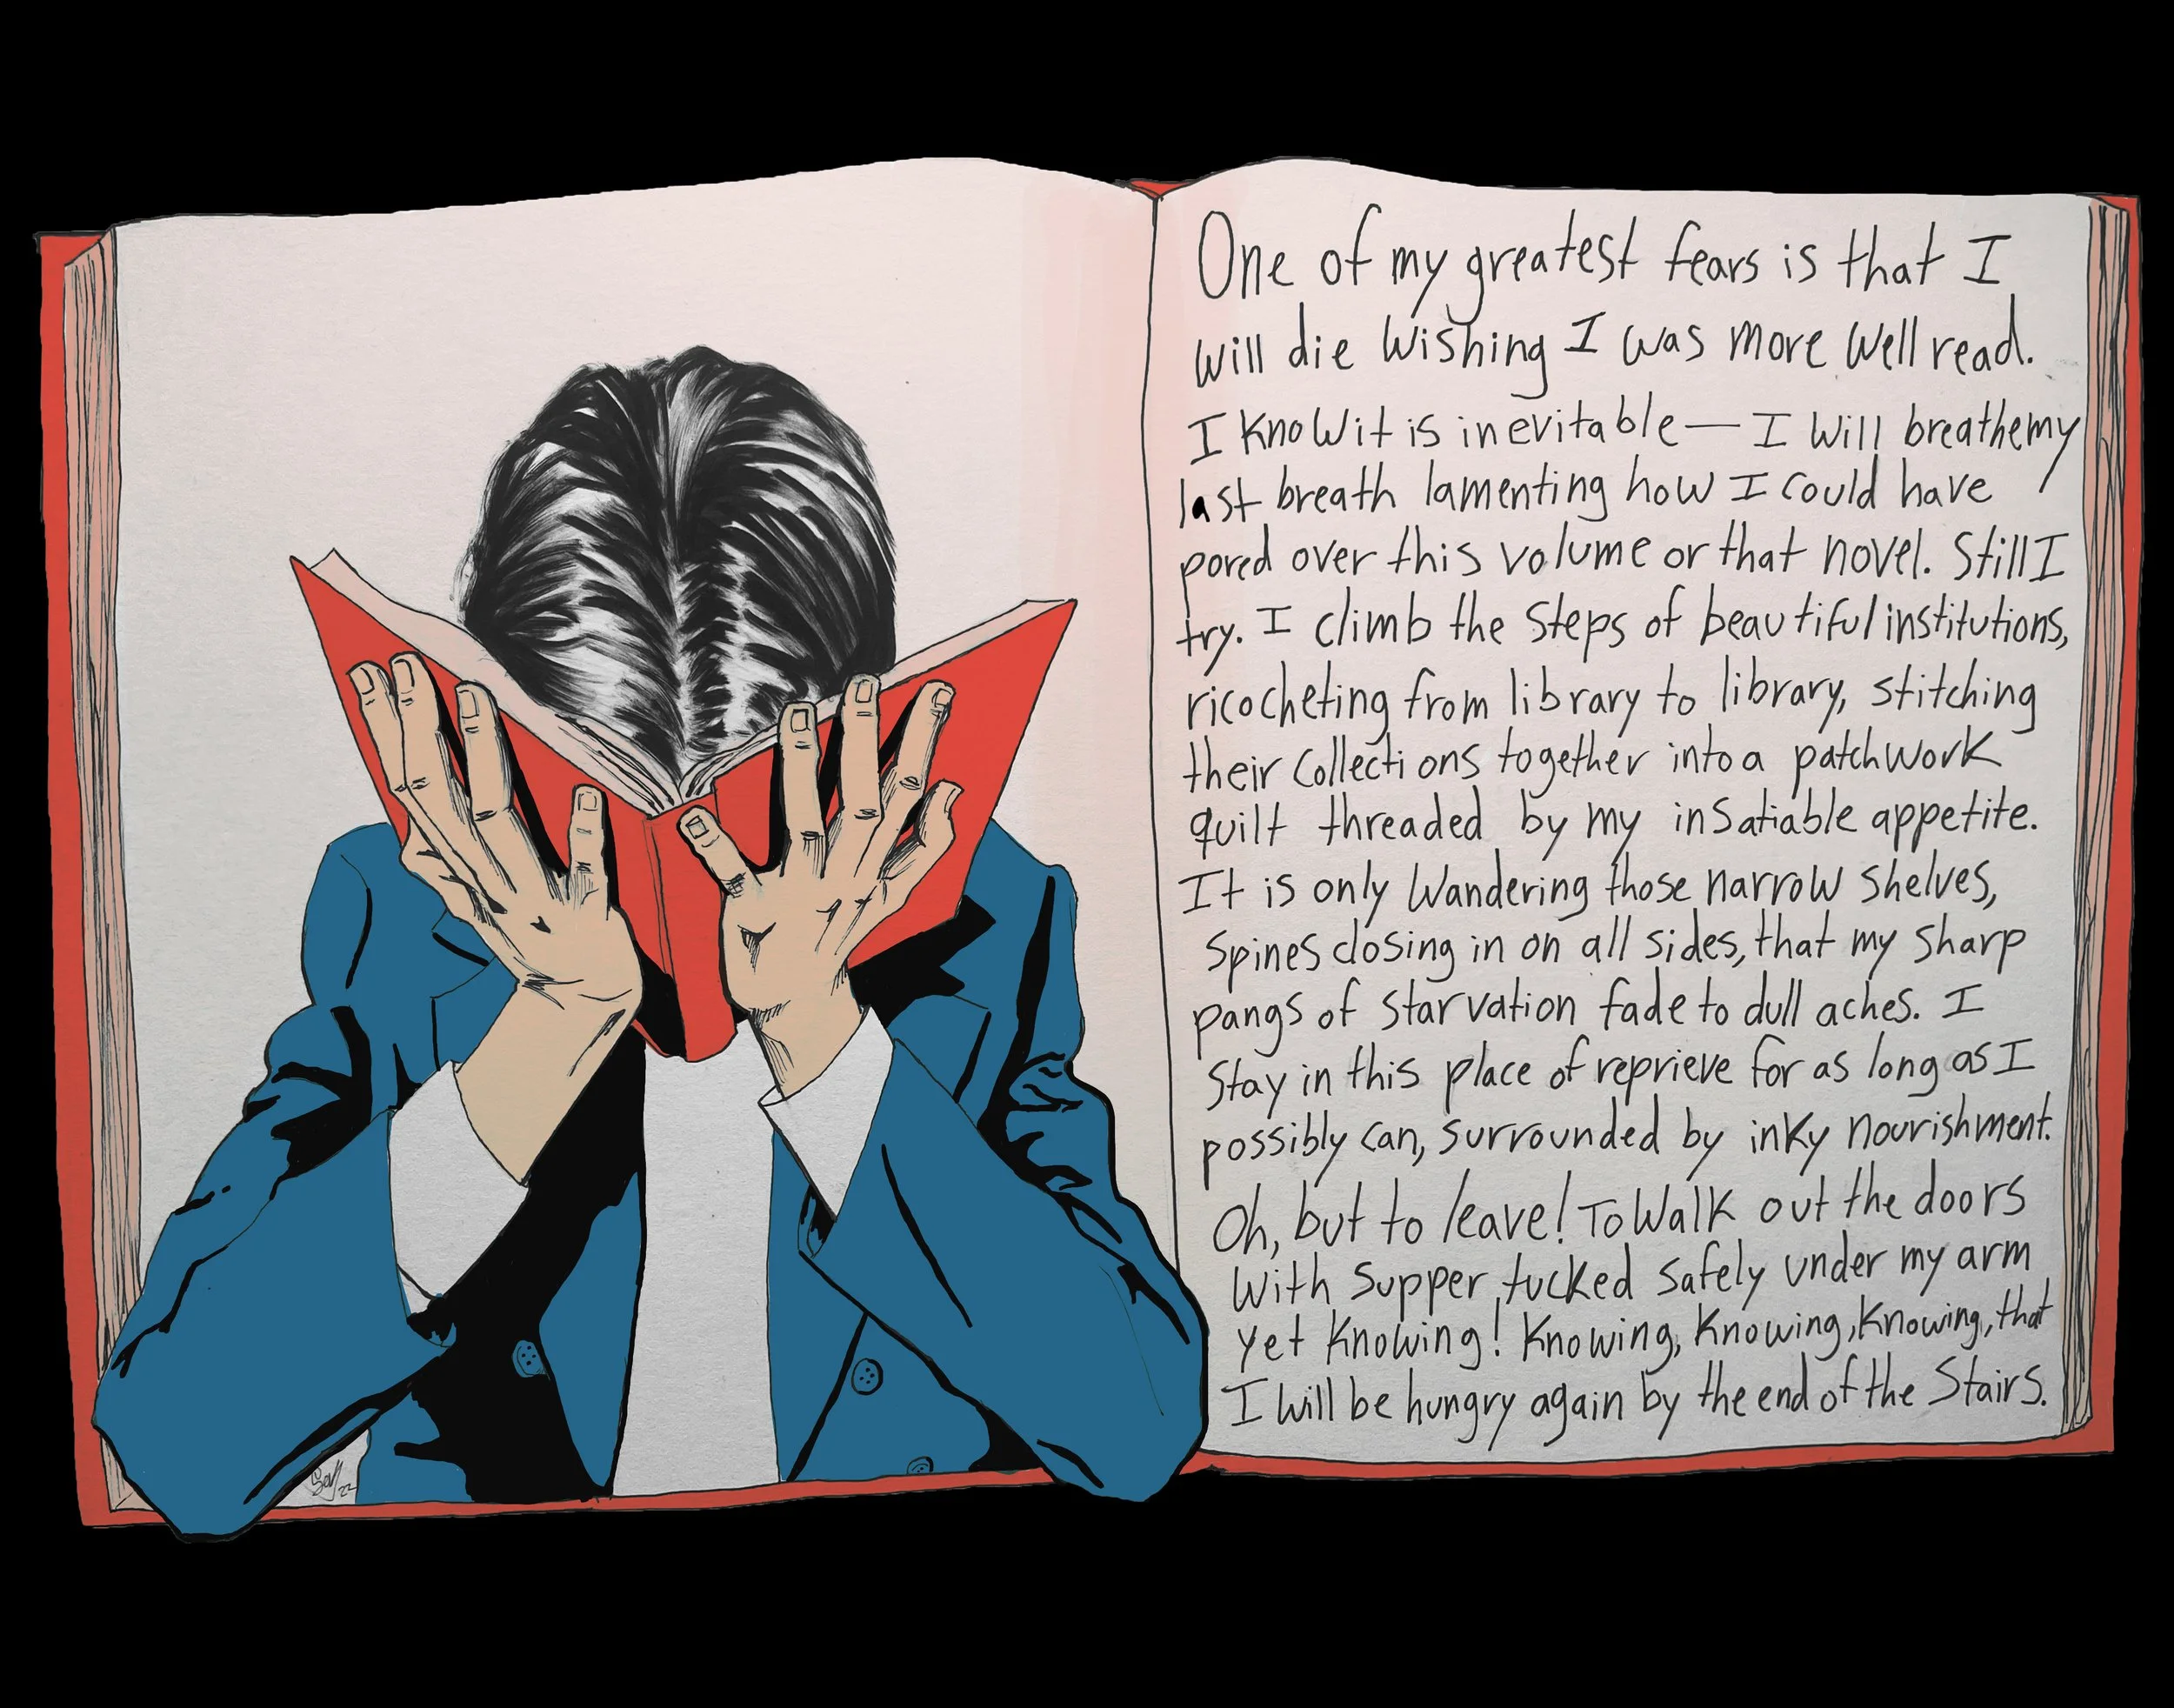 One of my greatest fears is that I
will die wishing I was more well read.
I know it is inevitable — I will breathe my
last breath lamenting how I could have
pored over this volume or that novel. Still I
try. I climb the steps of beautiful institutions,
ricocheting from library to library, stitching
their collections together into a patchwork
quilt threaded by my insatiable appetite.
It is only wandering those narrow shelves,
spines closing in on all sides, that my sharp
pangs of starvation fade to dull aches. I
stay in this place of reprieve for as long as I
possibly can, surrounded by inky nourishment.
Oh, but to leave! To walk out the doors
with supper tucked safely under my arm
yet knowing! Knowing, knowing, knowing, that
I will be hungry again by the end of the stairs.